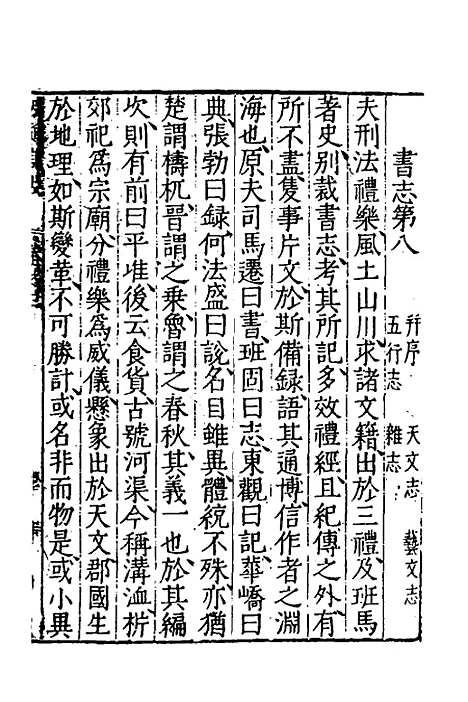 書志第八
并序 天文志 藝文志
五行志 雜志
夫刑法禮樂風土山川求諸文籍出於三禮及班馬
著史別裁書志考其所記多效禮經且紀傳之外有
所不盡隻事片文於斯備録語其通博信作者之淵
海也原夫司馬遷曰書班固曰志東觀曰記華嶠曰
典張勃曰録何法盛曰說名目雖異體統不殊亦猶
楚謂檮杌晉謂之乗魯謂之春秋其義一也於其編
次則有前曰平準後云食貨古號河渠今稱溝洫析
郊祀爲宗廟分禮樂爲威儀懸象出於天文郡國生
於地理如斯變革不可勝計或名非而物是或小異